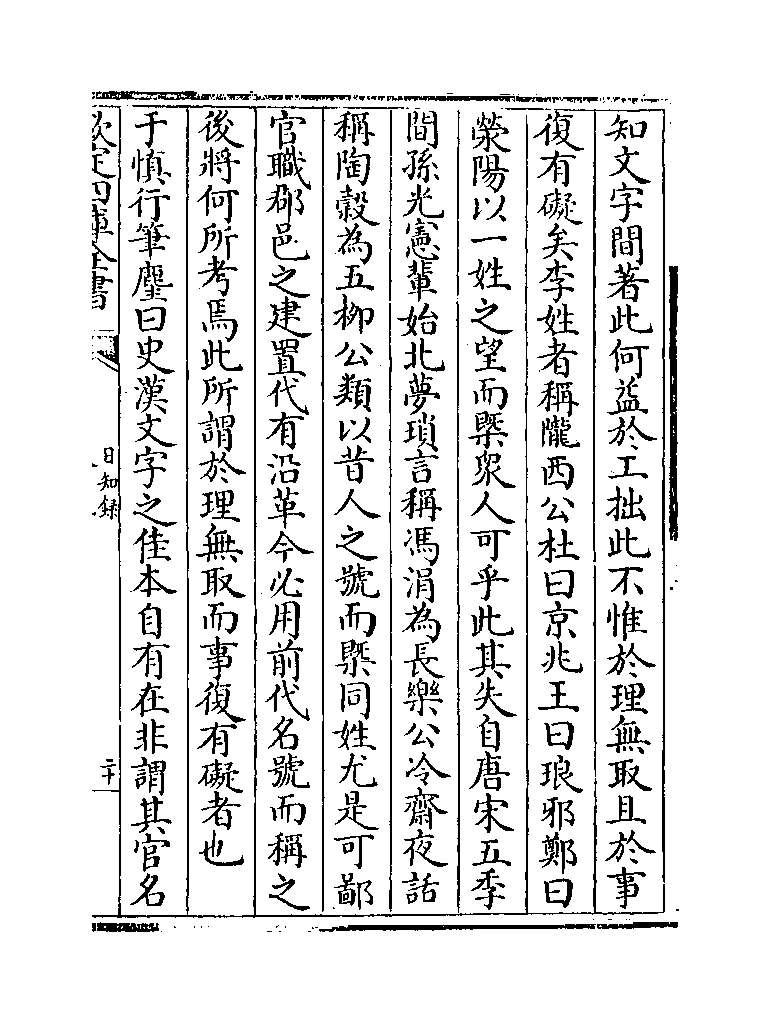 知文字間著此何益於工拙此不惟於理無取且於事
復有礙矣李姓者稱隴西公杜曰京兆王曰琅邪鄭曰
滎陽以一姓之望而槩衆人可乎此其失自唐宋五季
間孫光憲輩始北夢瑣言稱馮涓為長樂公冷齋夜話
稱陶穀為五柳公類以昔人之號而槩同姓尤是可鄙
官職郡邑之建置代有沿革今必用前代名號而稱之
後將何所考焉此所謂於理無取而事復有礙者也
于慎行筆麈曰史漢文字之佳本自有在非謂其官名
欽定四庫全書
日知錄
二十